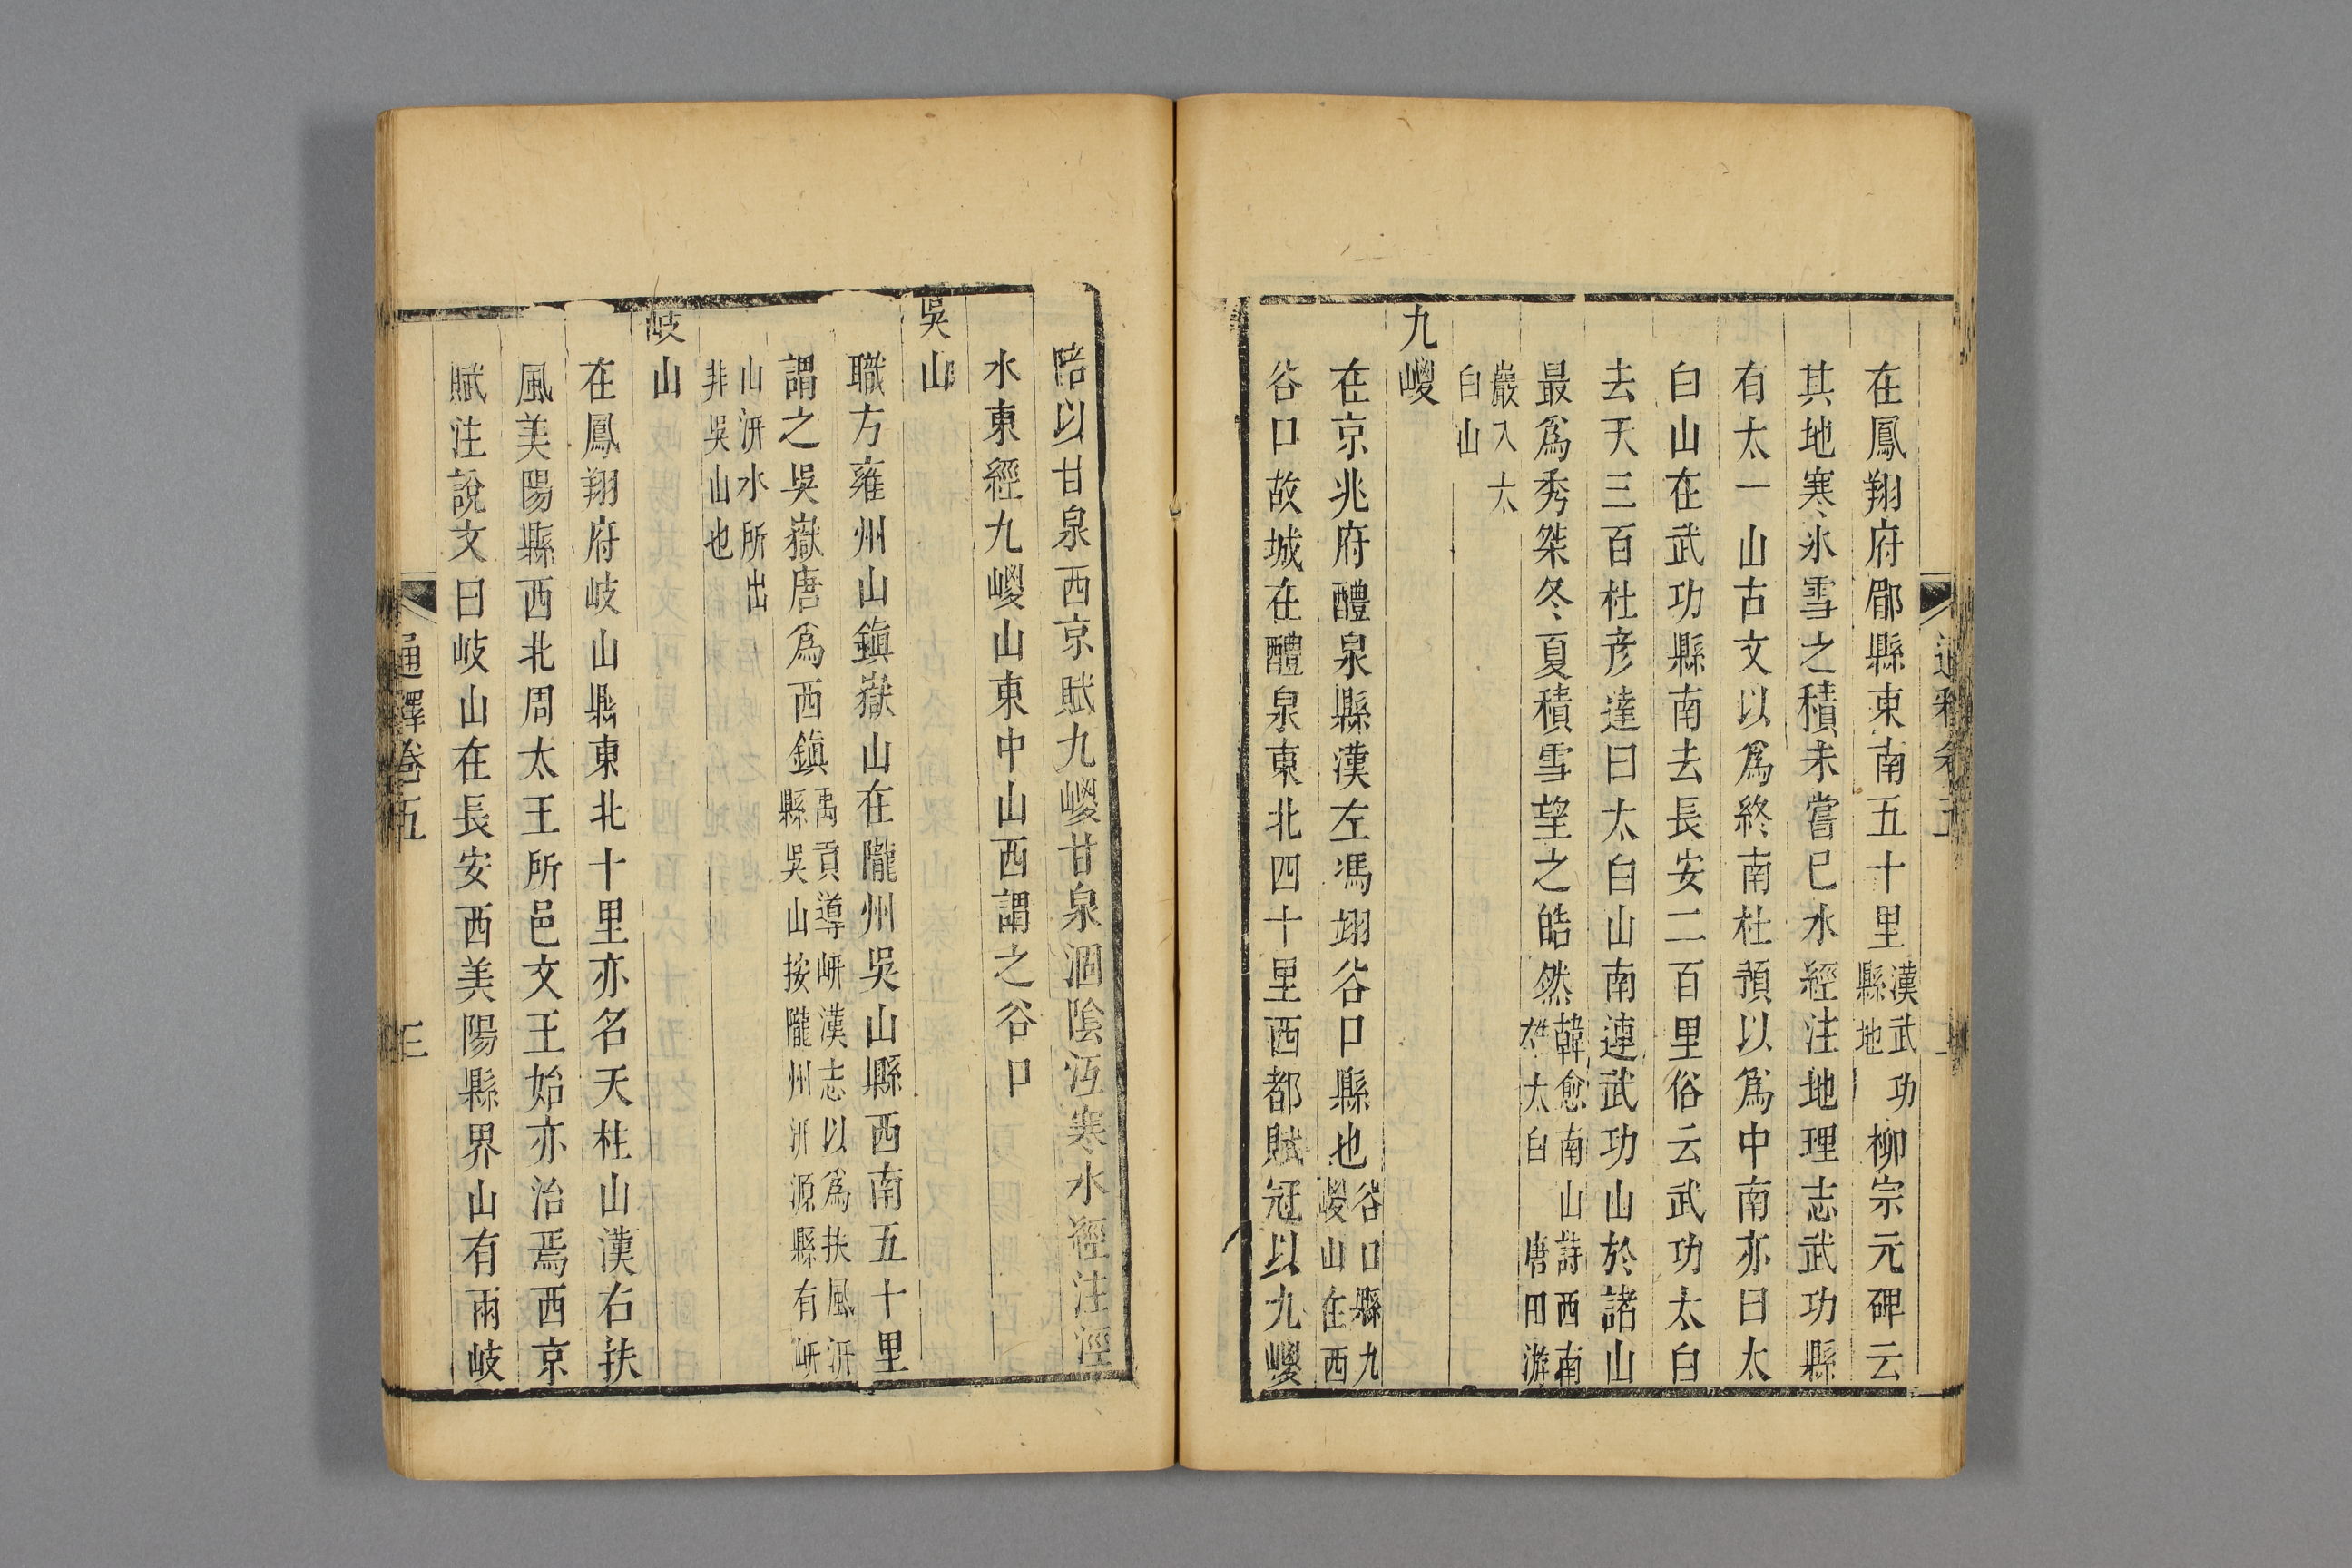 在鳳翔府郿縣東南五十里漢武功縣地柳宗元碑云
其地寒冰雪之積未嘗已水經注地理志武功縣
有太一山古文以爲終南杜預以爲中南亦曰太
白山在武功縣南去長安二百里俗云武功太白
去天三百杜彦達曰太白山南連武功山於諸山
最爲秀桀冬夏積雪望之皓然韓愈南山詩西南雄太白唐田游
巖入太白山
九嵕
在京兆府醴泉縣漢左馮翊谷口縣也谷口縣九嵕山在西
谷口故城在醴泉東北四十里西都賦冠以九嵕
陪以甘泉西京賦九嵕甘泉涸陰沍寒水經注涇
水東經九嵕山東中山西謂之谷口
吳山
職方雍州山鎮嶽山在隴州吳山縣西南五十里
謂之吳嶽唐爲西鎮禹貢導岍漢志以爲扶風汧縣吳山按隴州汧源縣有岍
山汧水所出非吳山也
岐山
在鳳翔府岐山縣東北十里亦名天柱山漢右扶
風美陽縣西北周太王所邑文王始亦治焉西京
賦注說文曰岐山在長安西美陽縣界山有兩岐
通釋卷五
三